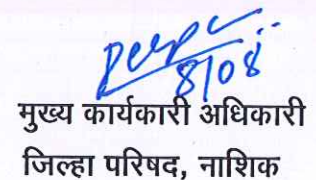 8/08
मुख्य कार्यकारी अधिकारी
जिल्हा परिषद, नाशिक